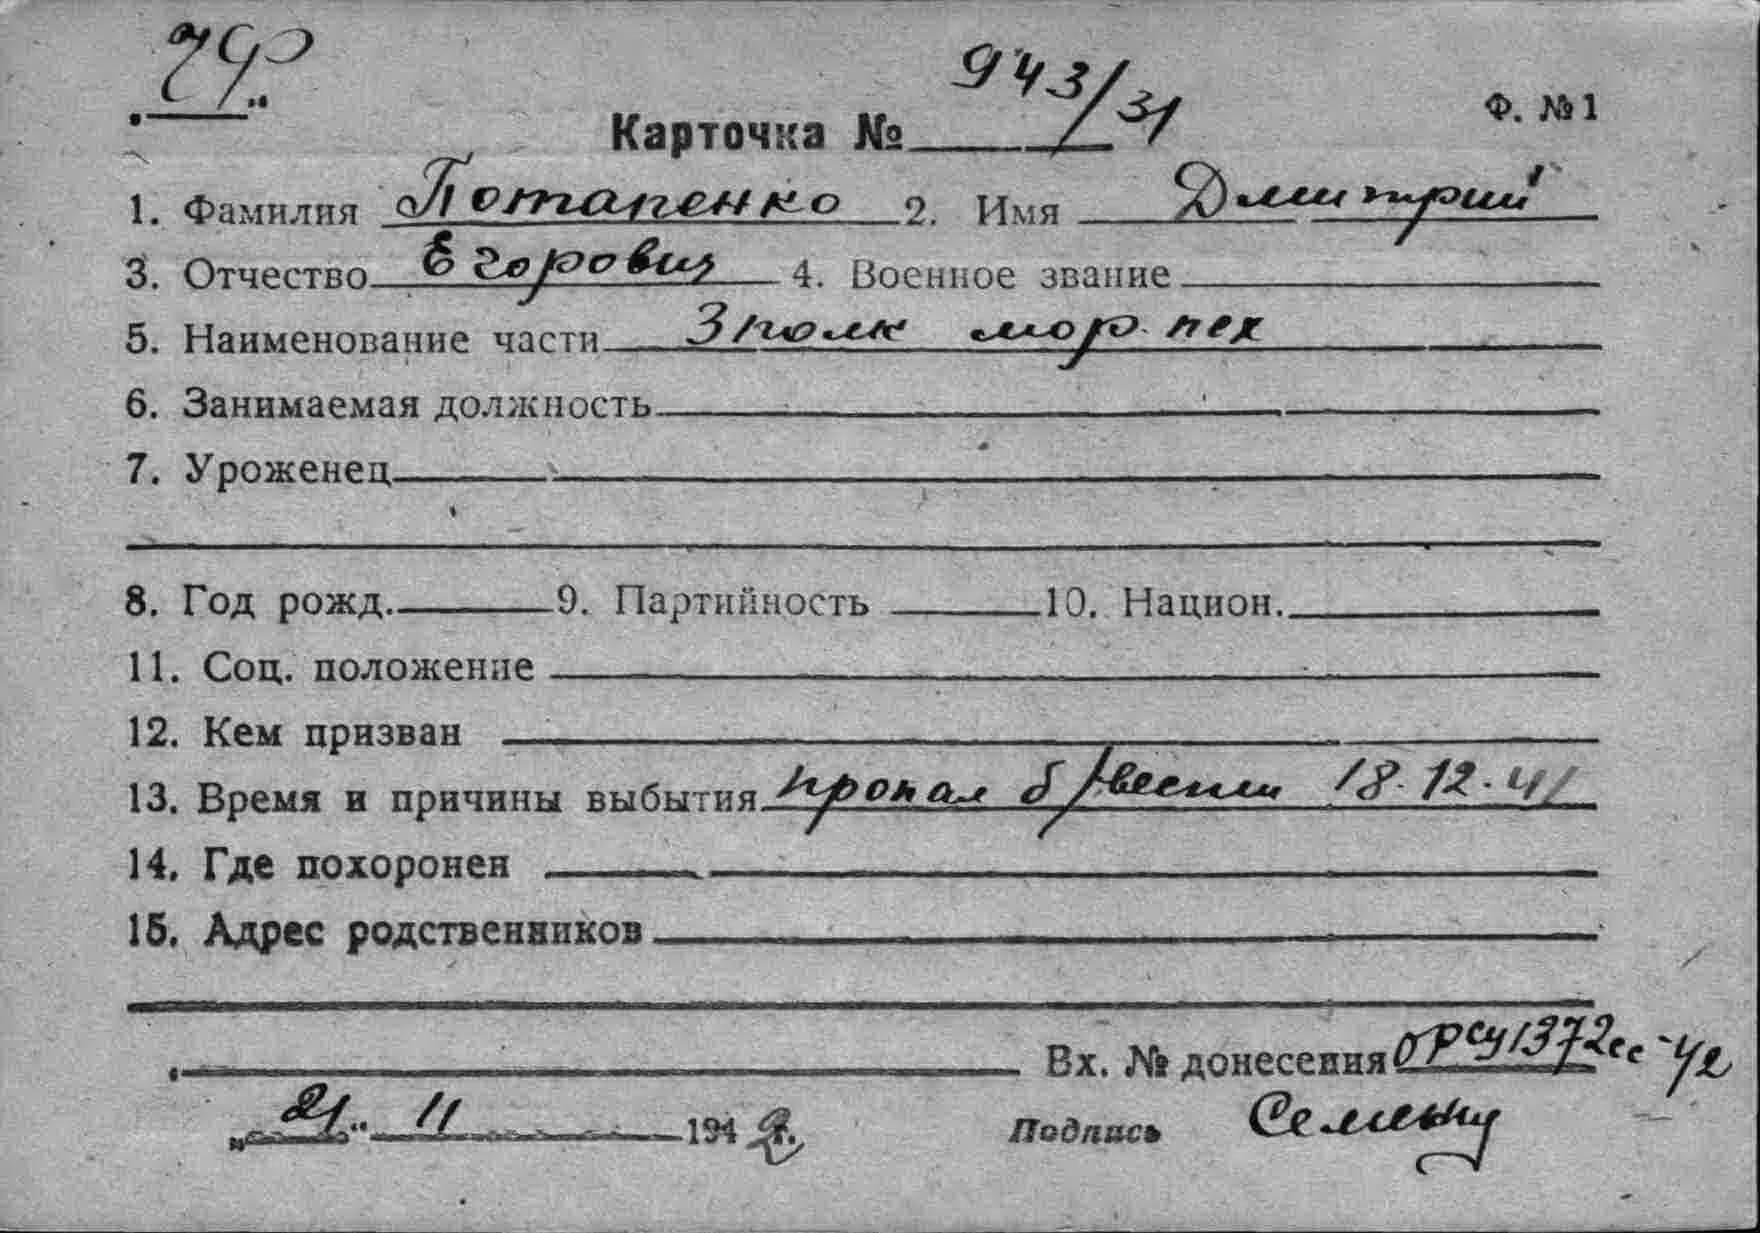 ЧФ
Карточка № 943/31 Ф. №1
1. Фамилия Потапенко 2. Имя Дмитрий
3. Отчество Егорович 4. Военное звание
5. Наименование части 3 полк мор. пех
6. Занимаемая должность
7. Уроженец
8. Год рожд. 9. Партийность 10. Национ.
11. Соц. положение
12. Кем призван
13. Время и причины выбытия пропал б/вести 18.12.41
14. Где похоронен
15. Адрес родственников
Вх. № донесения ОРСУ 1372сс-42
„21“ 11 1942г. Подпись